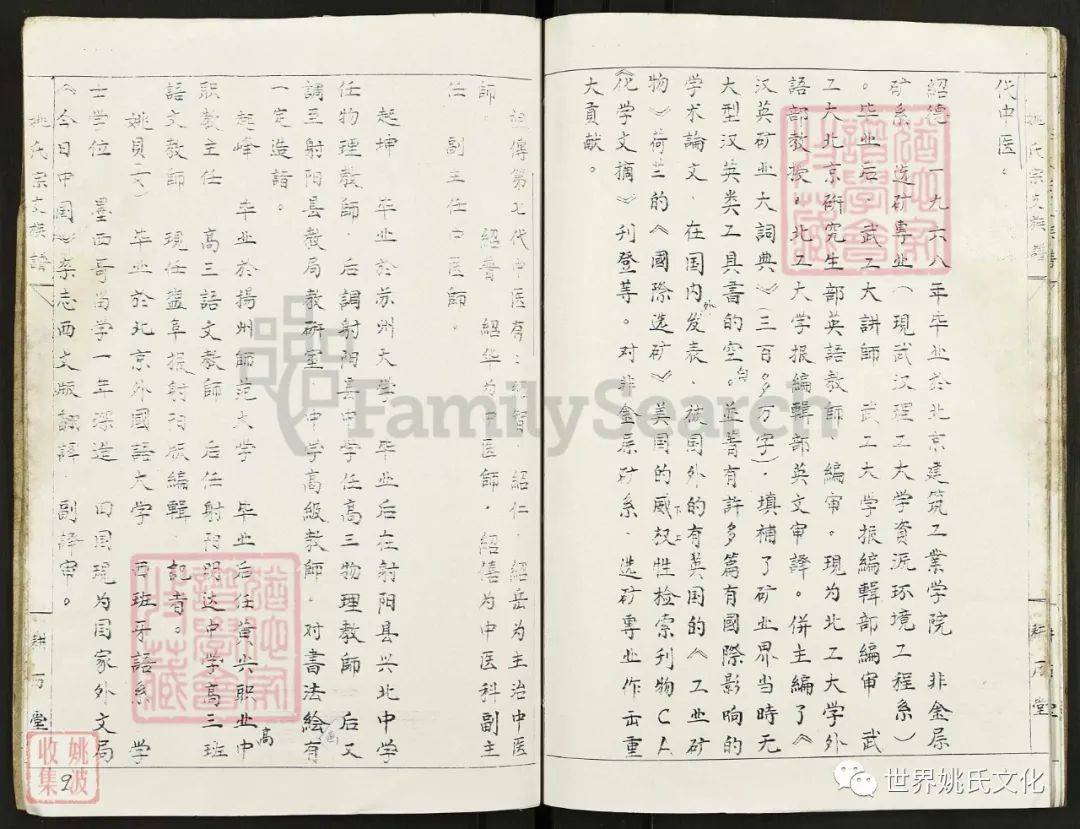 代中医。
紹德 一九六八年毕业於北京建筑工業学院 非金属
矿系 选矿专业(現武汉理工大学資源环境工程系)
。毕业后 武工大讲師 武工大学报編輯部編审 武
工大北京研究生部英語教師 編审。現为北工大学外
語部教授。北工大学报編輯部英文审譯。併主編了《
汉英矿业大詞典》(三百多万字)，填補了矿业界当時无
大型汉英类工具書的空白。並著有許多篇有國際影响的
学术論文，在国内外发表，被国外的有英国的《工业矿
物》荷兰的《國際选矿》美国的威权性检索刊物CA
《化学文摘》刊登等。对非金属矿系、选矿專业作出重
大貢献。
祖傳第七代中医有：紹智、紹仁、紹岳为主治中医
師。 紹普 紹华为中医師，紹僖为中医科副主
任 副主任中医師。
起坤 毕业於苏州大学 毕业后在射阳县兴北中学
任物理教師 后調射阳县中学任高三物理教師 后又
調至射阳县教局教研室 中学高級教師，对書法繪画有
一定造詣。
起峰 毕业於揚州師范大学 毕业后任黄尖职业高中
职教主任 高三語文教師 后任射阳明达中学高三班
語文教師 現任盐阜报射阳版編輯 記者。
姚貝(女) 毕业於北京外國語大学 西班牙語系 学
士学位 墨西哥留学一年深造 回国現为国家外文局
《今日中国》杂志西文版翻譯 副譯审。
姚氏宗文族譜
耕万堂
姚氏宗文族譜
耕万堂
姚波
收集
9
FamilySearch
世界姚氏文化